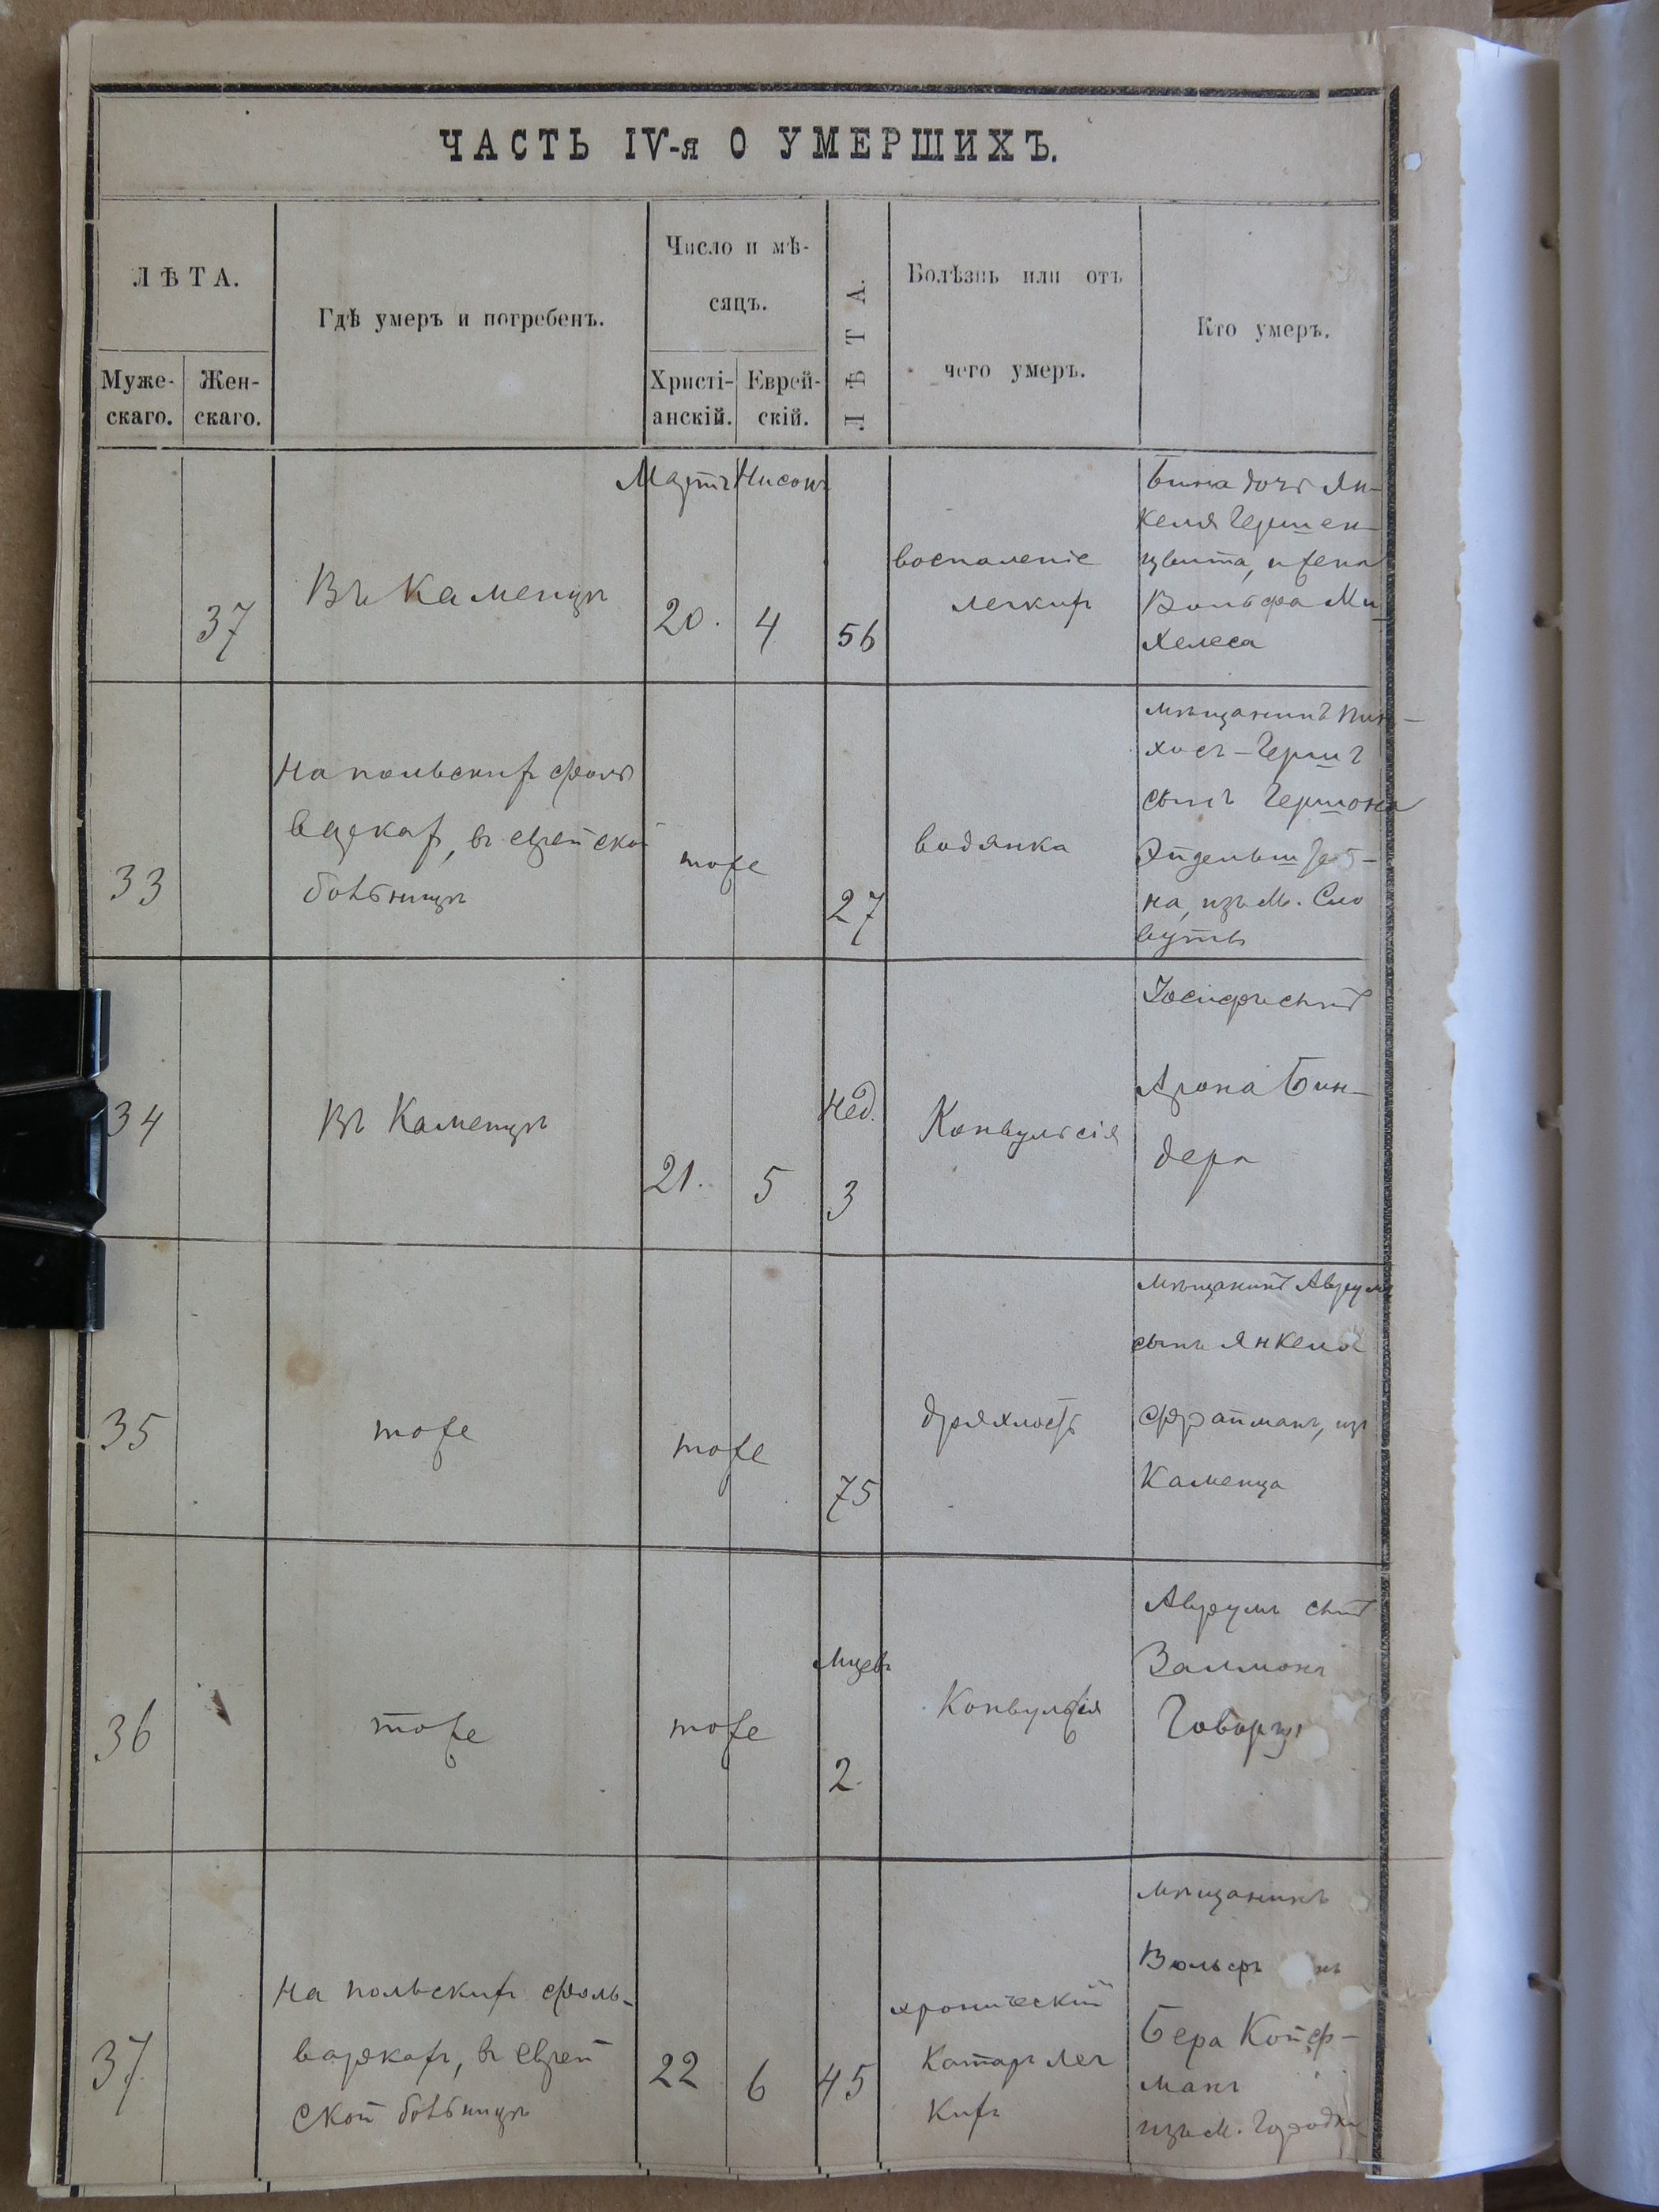 ЧАСТЬ IV-я О УМЕРШИХЪ.
ЛѢТА.
Муже-
скаго.
Жен-
скаго.
Гдѣ умеръ и погребенъ.
Число и мѣ-
сяцъ.
Христі-
анскій.
Еврей-
скій.
ЛѢТА.
Болѣзнь или отъ
чего умеръ.
Кто умеръ.
Мартъ Нисонъ
37
Въ Каменцѣ
20.
4
56
воспаленіе
легкихъ
Бина дочь Ян-
келя Гершен-
цвита, и жена
Вольфа Ми
хелеса
33
На польскихъ фоль
варкахъ, въ еврейской
больницѣ
тоже
27
водянка
мѣщанинъ Пин-
хосъ-Гершъ
сынъ Гершона
на, изъ М. Сло
вуты
34
Въ Каменцѣ
21.
5
Нед.
3
Конвульсія
Іосифъ сынъ
Арона Бин-
дера
35
тоже
тоже
75
дряхлость
мѣщанинъ Аврумъ
сынъ Янкеля
Фрайманъ, изъ
Каменца
36
тоже
тоже
Мцевъ
2.
Конвульсія
Аврумъ сынъ
Залмонъ
37
На польскихъ фоль-
варкахъ, въ еврей
ской больницѣ
22
6
45
хроническій
Катаръ лег
кихъ
мѣщанинъ
Вольфъ
Бера Койф-
манъ
изъ М. Городка